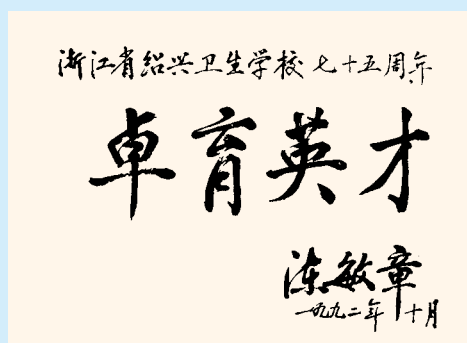 浙江省绍兴卫生学校七十五周年
卓育英才
陈敏章
一九九二年十月